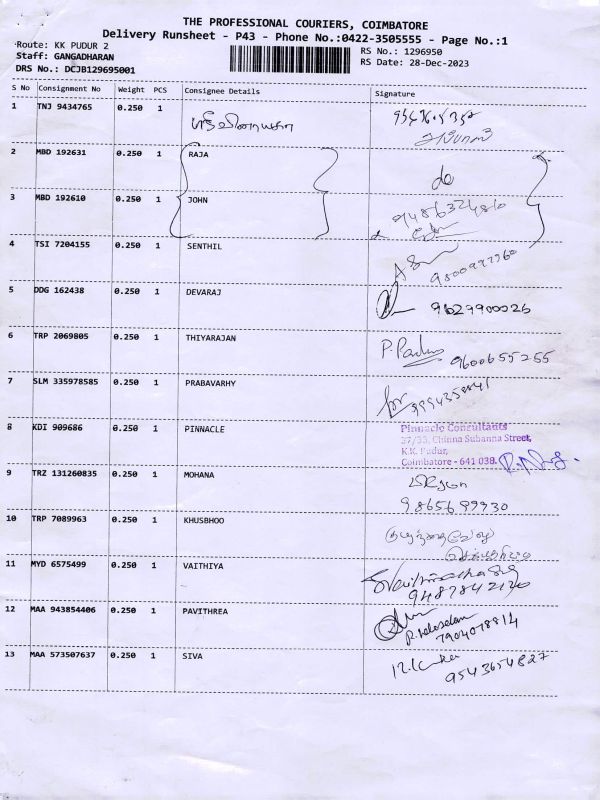 THE PROFESSIONAL COURIERS, COIMBATORE
Delivery Runsheet - P43 - Phone No.:0422-3505555 - Page No.:1
Route: KK PUDUR 2
RS No.: 1296950
Staff: GANGADHARAN
RS Date: 28-Dec-2023
DRS No.: DCJB129695001
S No Consignment No Weight PCS Consignee Details Signature
1 TNJ 9434765 0.250 1
2 MBD 192631 0.250 1 RAJA do
3 MBD 192610 0.250 1 JOHN
4 TSI 7204155 0.250 1 SENTHIL
5 DDG 162438 0.250 1 DEVARAJ 9629900026
6 TRP 2069805 0.250 1 THIYARAJAN 9600655255
7 SLM 335978585 0.250 1 PRABAVARHY
8 KDI 909686 0.250 1 PINNACLE
Pinnacle Consultants
37/33, Chinna Subanna Street,
K.K. Pudur,
Coimbatore - 641 038.
9 TRZ 131260835 0.250 1 MOHANA
9865699930
10 TRP 7089963 0.250 1 KHUSBHOO
11 MYD 6575499 0.250 1 VAITHIYA
9487842120
12 MAA 943854406 0.250 1 PAVITHREA
7904078814
13 MAA 573507637 0.250 1 SIVA 9543654827